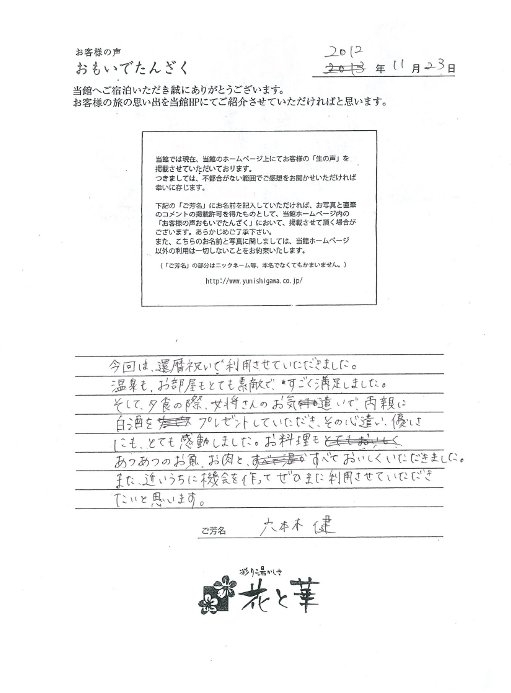 お客様の声
おもいでたんざく
2012
2013 年 11 月 23 日
当館へご宿泊いただき誠にありがとうございます。
お客様の旅の思い出を当館HPにてご紹介させていただければと思います。
当館では現在、当館のホームページ上にてお客様の「生の声」を
掲載させていただいております。
つきましては、不都合がない範囲でご感想をお聞かせいただければ
幸いに存じます。
下記の「ご芳名」にお名前を記入していただければ、お写真と直筆
のコメントの掲載許可を得たものとして、当館ホームページ内の
「お客様の声おもいでたんざく」において、掲載させて頂く場合が
ございます。あらかじめご了承下さい。
また、こちらのお名前と写真に関しましては、当館ホームページ
以外の利用は一切しないことをお約束いたします。
(「ご芳名」の部分はニックネーム等、本名でなくてもかまいません。)
http://www.yunishigawa.co.jp/
今回は、還暦祝いで利用させていただきました。
温泉も、お部屋もとても素敵で、すごく満足しました。
そして、夕食の際、女将さんのお気遣いで、両親に
白酒を プレゼントしていただき、その心遣い、優しさ
にも、とても感動しました。お料理も とてもおいしく
あつあつのお魚、お肉と、 すべておいしくいただきました。
また、近いうちに機会を作って ぜひまた利用させていただき
たいと思います。
ご芳名 六本木 健
彩り湯かしき
花と華